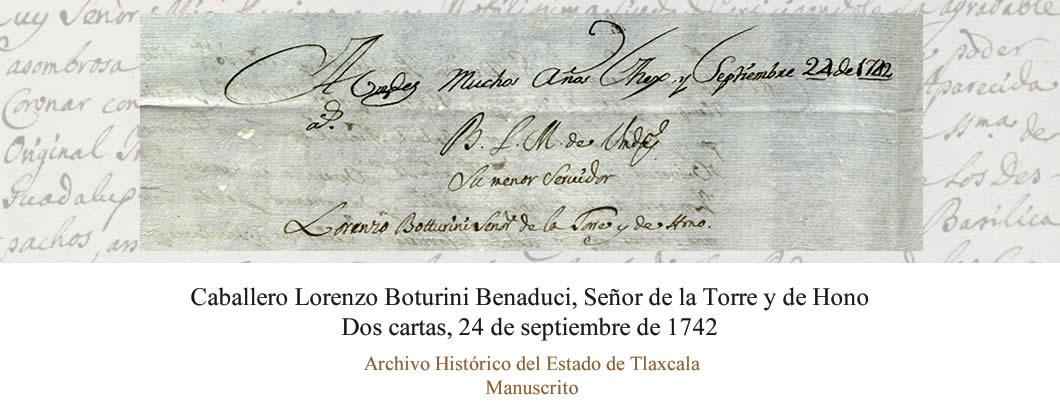 uy Señor
agradable
asombrosa
poder
Coronar con
Aparecida
Original
SSma. de
Guadalup
Los Des-
pachos, an
Basilica
Muchos Años Mexo. y Septiembre 24 de 1742
B. L. M. de Vmdes.
Su menor Servidor
Lorenzo Botturini Señor. de la Torre y de Hono.
Caballero Lorenzo Boturini Benaduci, Señor de la Torre y de Hono
Dos cartas, 24 de septiembre de 1742
Archivo Histórico del Estado de Tlaxcala
Manuscrito